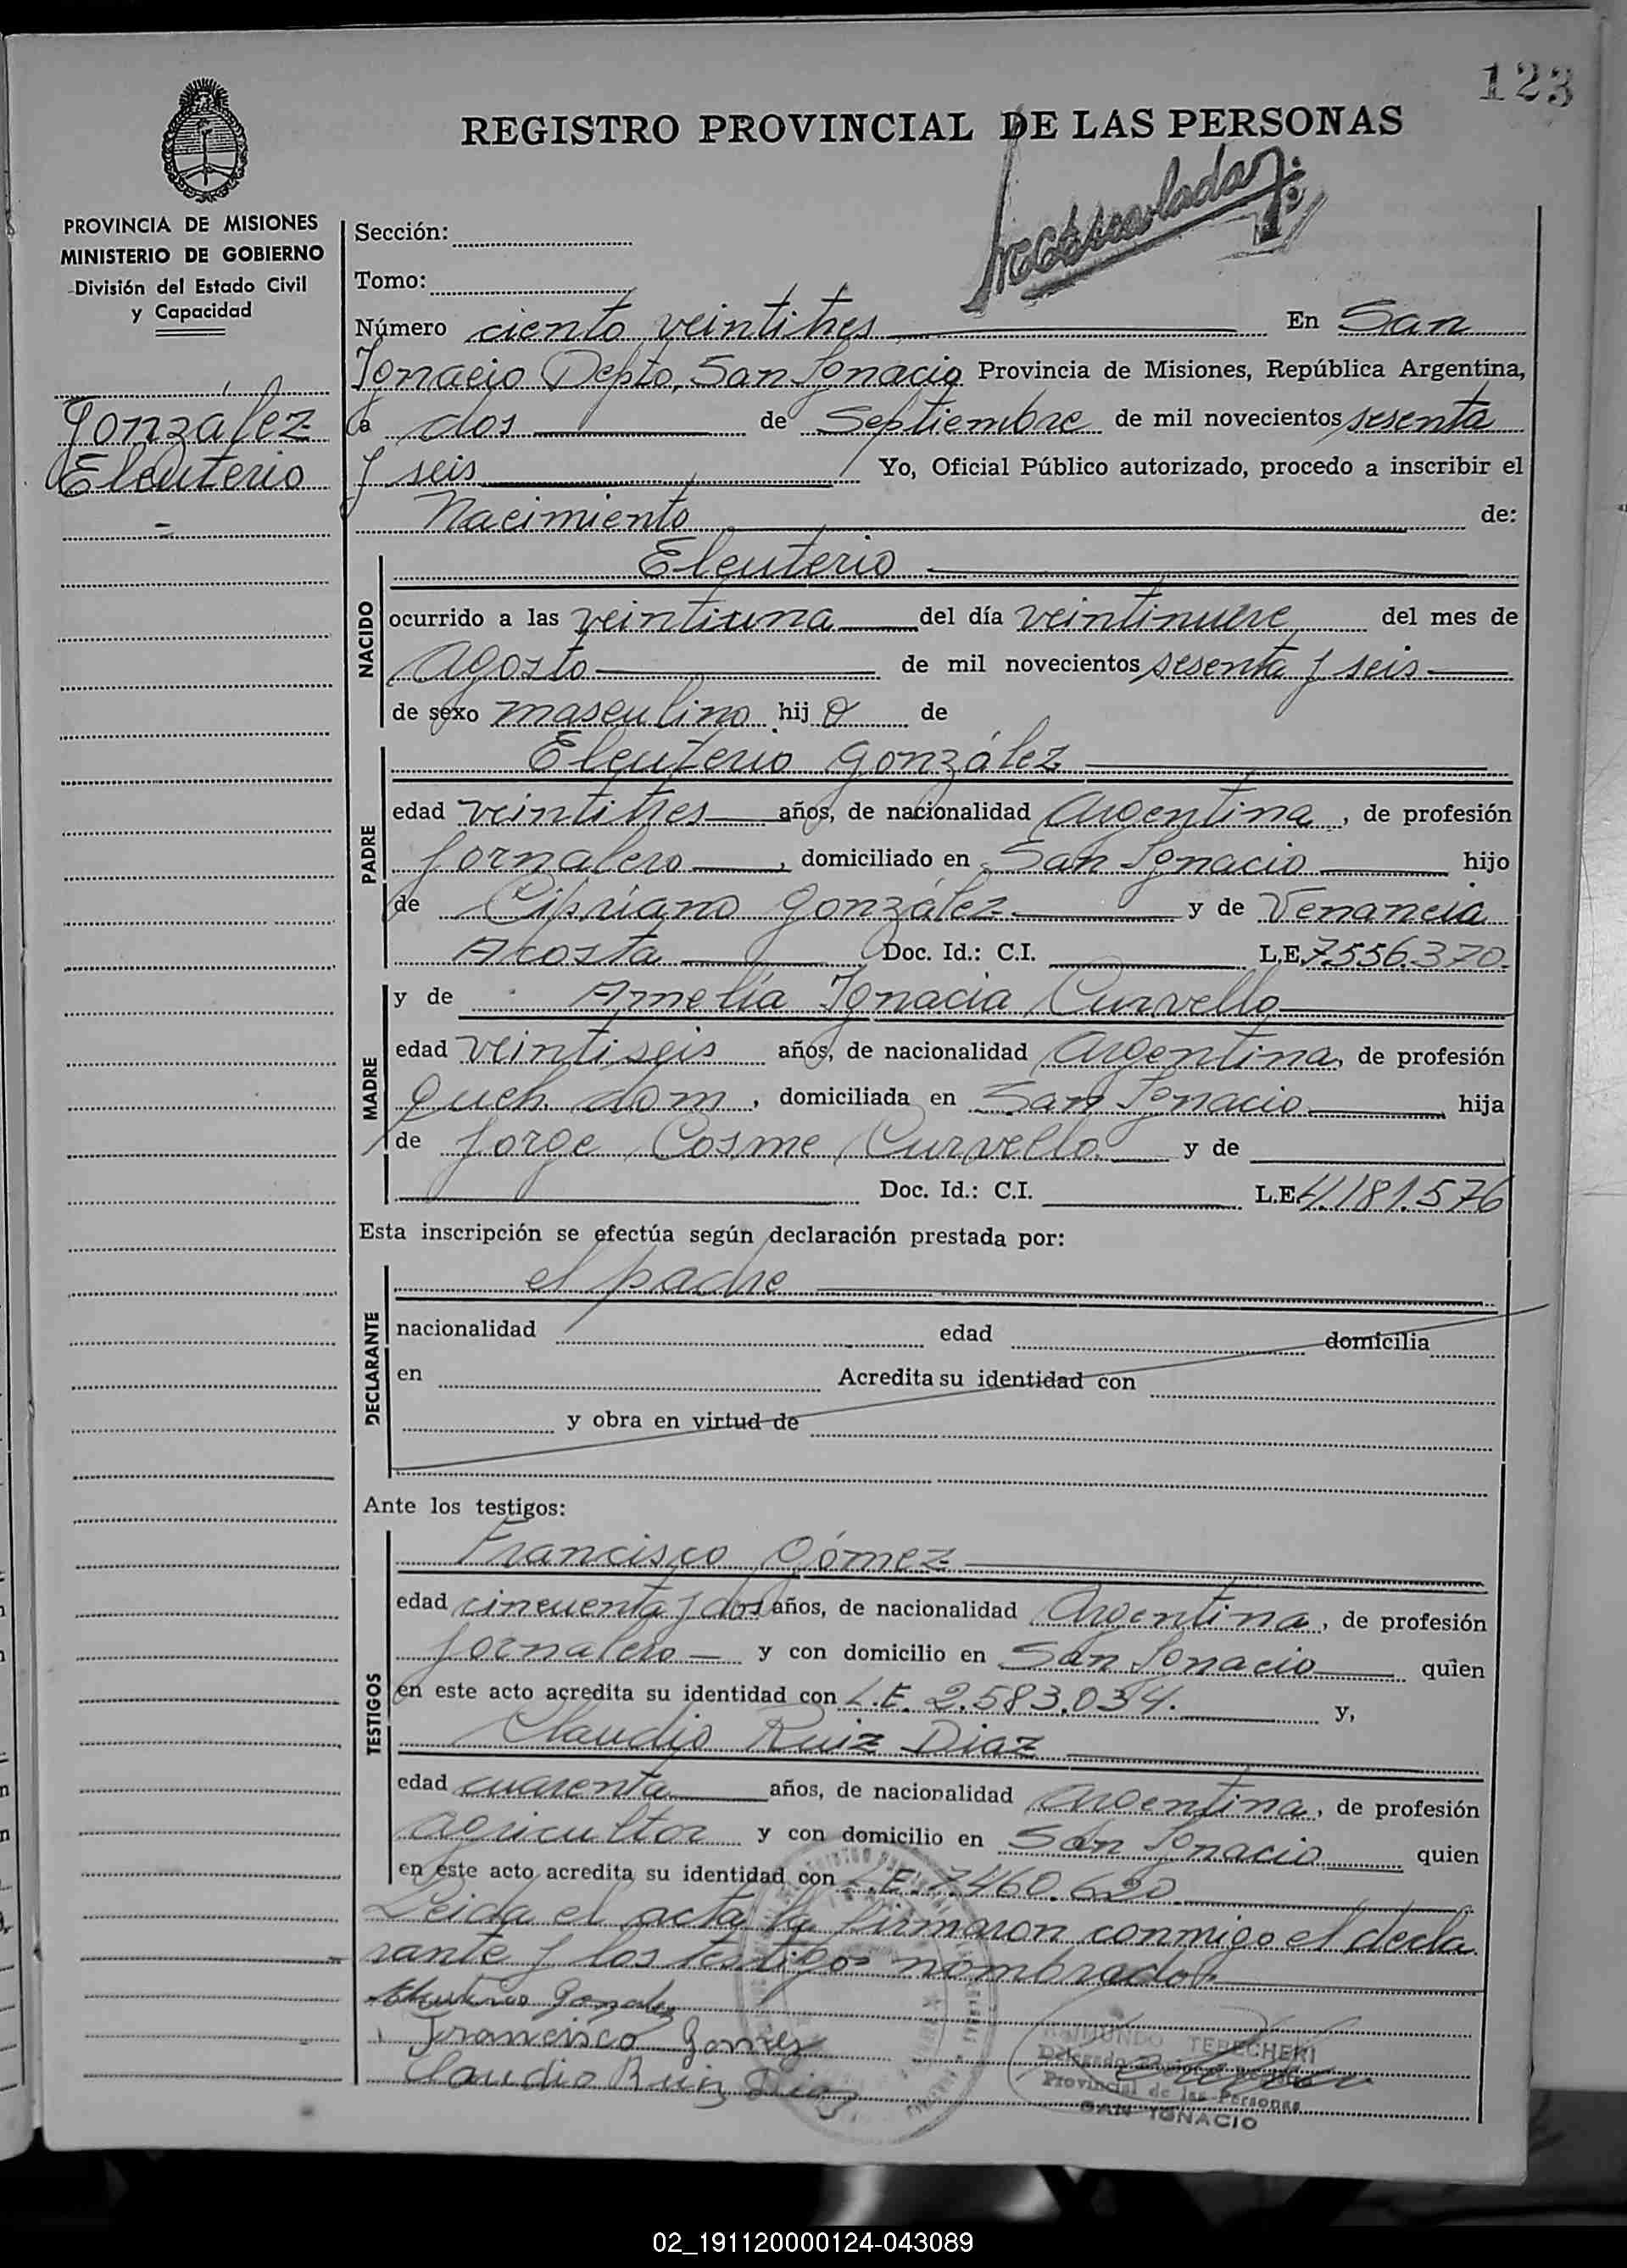 123
REGISTRO PROVINCIAL DE LAS PERSONAS
PROVINCIA DE MISIONES
MINISTERIO DE GOBIERNO
División del Estado Civil
y Capacidad
González
Eleuterio
Sección:
Tomo:
Número ciento veintitres En San
Ignacio Depto, San Ignacio Provincia de Misiones, República Argentina,
a dos de Septiembre de mil novecientos sesenta
y seis Yo, Oficial Público autorizado, procedo a inscribir el
Nacimiento de:
NACIDO
Eleuterio
ocurrido a las veintiuna del día veintinueve del mes de
Agosto de mil novecientos sesenta y seis
de sexo masculino hijo de
PADRE
Eleuterio González
edad veintitres años, de nacionalidad Argentina, de profesión
Jornalero, domiciliado en San Ignacio hijo
de Cipriano González y de Venancia
Acosta Doc. Id.: C.I. L.E. 7.556.370.
MADRE
y de Amelia Ignacia Curvello
edad veintiseis años, de nacionalidad Argentina, de profesión
Queh. dom, domiciliada en San Ignacio hija
de Jorge Cosme Curvello y de
Doc. Id.: C.I. L.E. 4.181.576
Esta inscripción se efectúa según declaración prestada por:
DECLARANTE
el padre
nacionalidad edad domicilia
en Acredita su identidad con
y obra en virtud de
Ante los testigos:
TESTIGOS
Francisco Gómez
edad cincuenta y dos años, de nacionalidad Argentina, de profesión
Jornalero y con domicilio en San Ignacio quien
en este acto acredita su identidad con L.E. 2.583.034. y,
Claudio Ruiz Diaz
edad cuarenta años, de nacionalidad Argentina, de profesión
Agricultor y con domicilio en San Ignacio quien
en este acto acredita su identidad con L.E. 7.460.620
Leida el acta la firmaron conmigo el decla
rante y los testigos nombrados.
Eleuterio Gonzalez
Francisco Gomez
Claudio Ruiz Diaz
RAIMUNDO TERECHEKI
Delegado
Provincial de las Personas
SAN IGNACIO
02_191120000124-043089